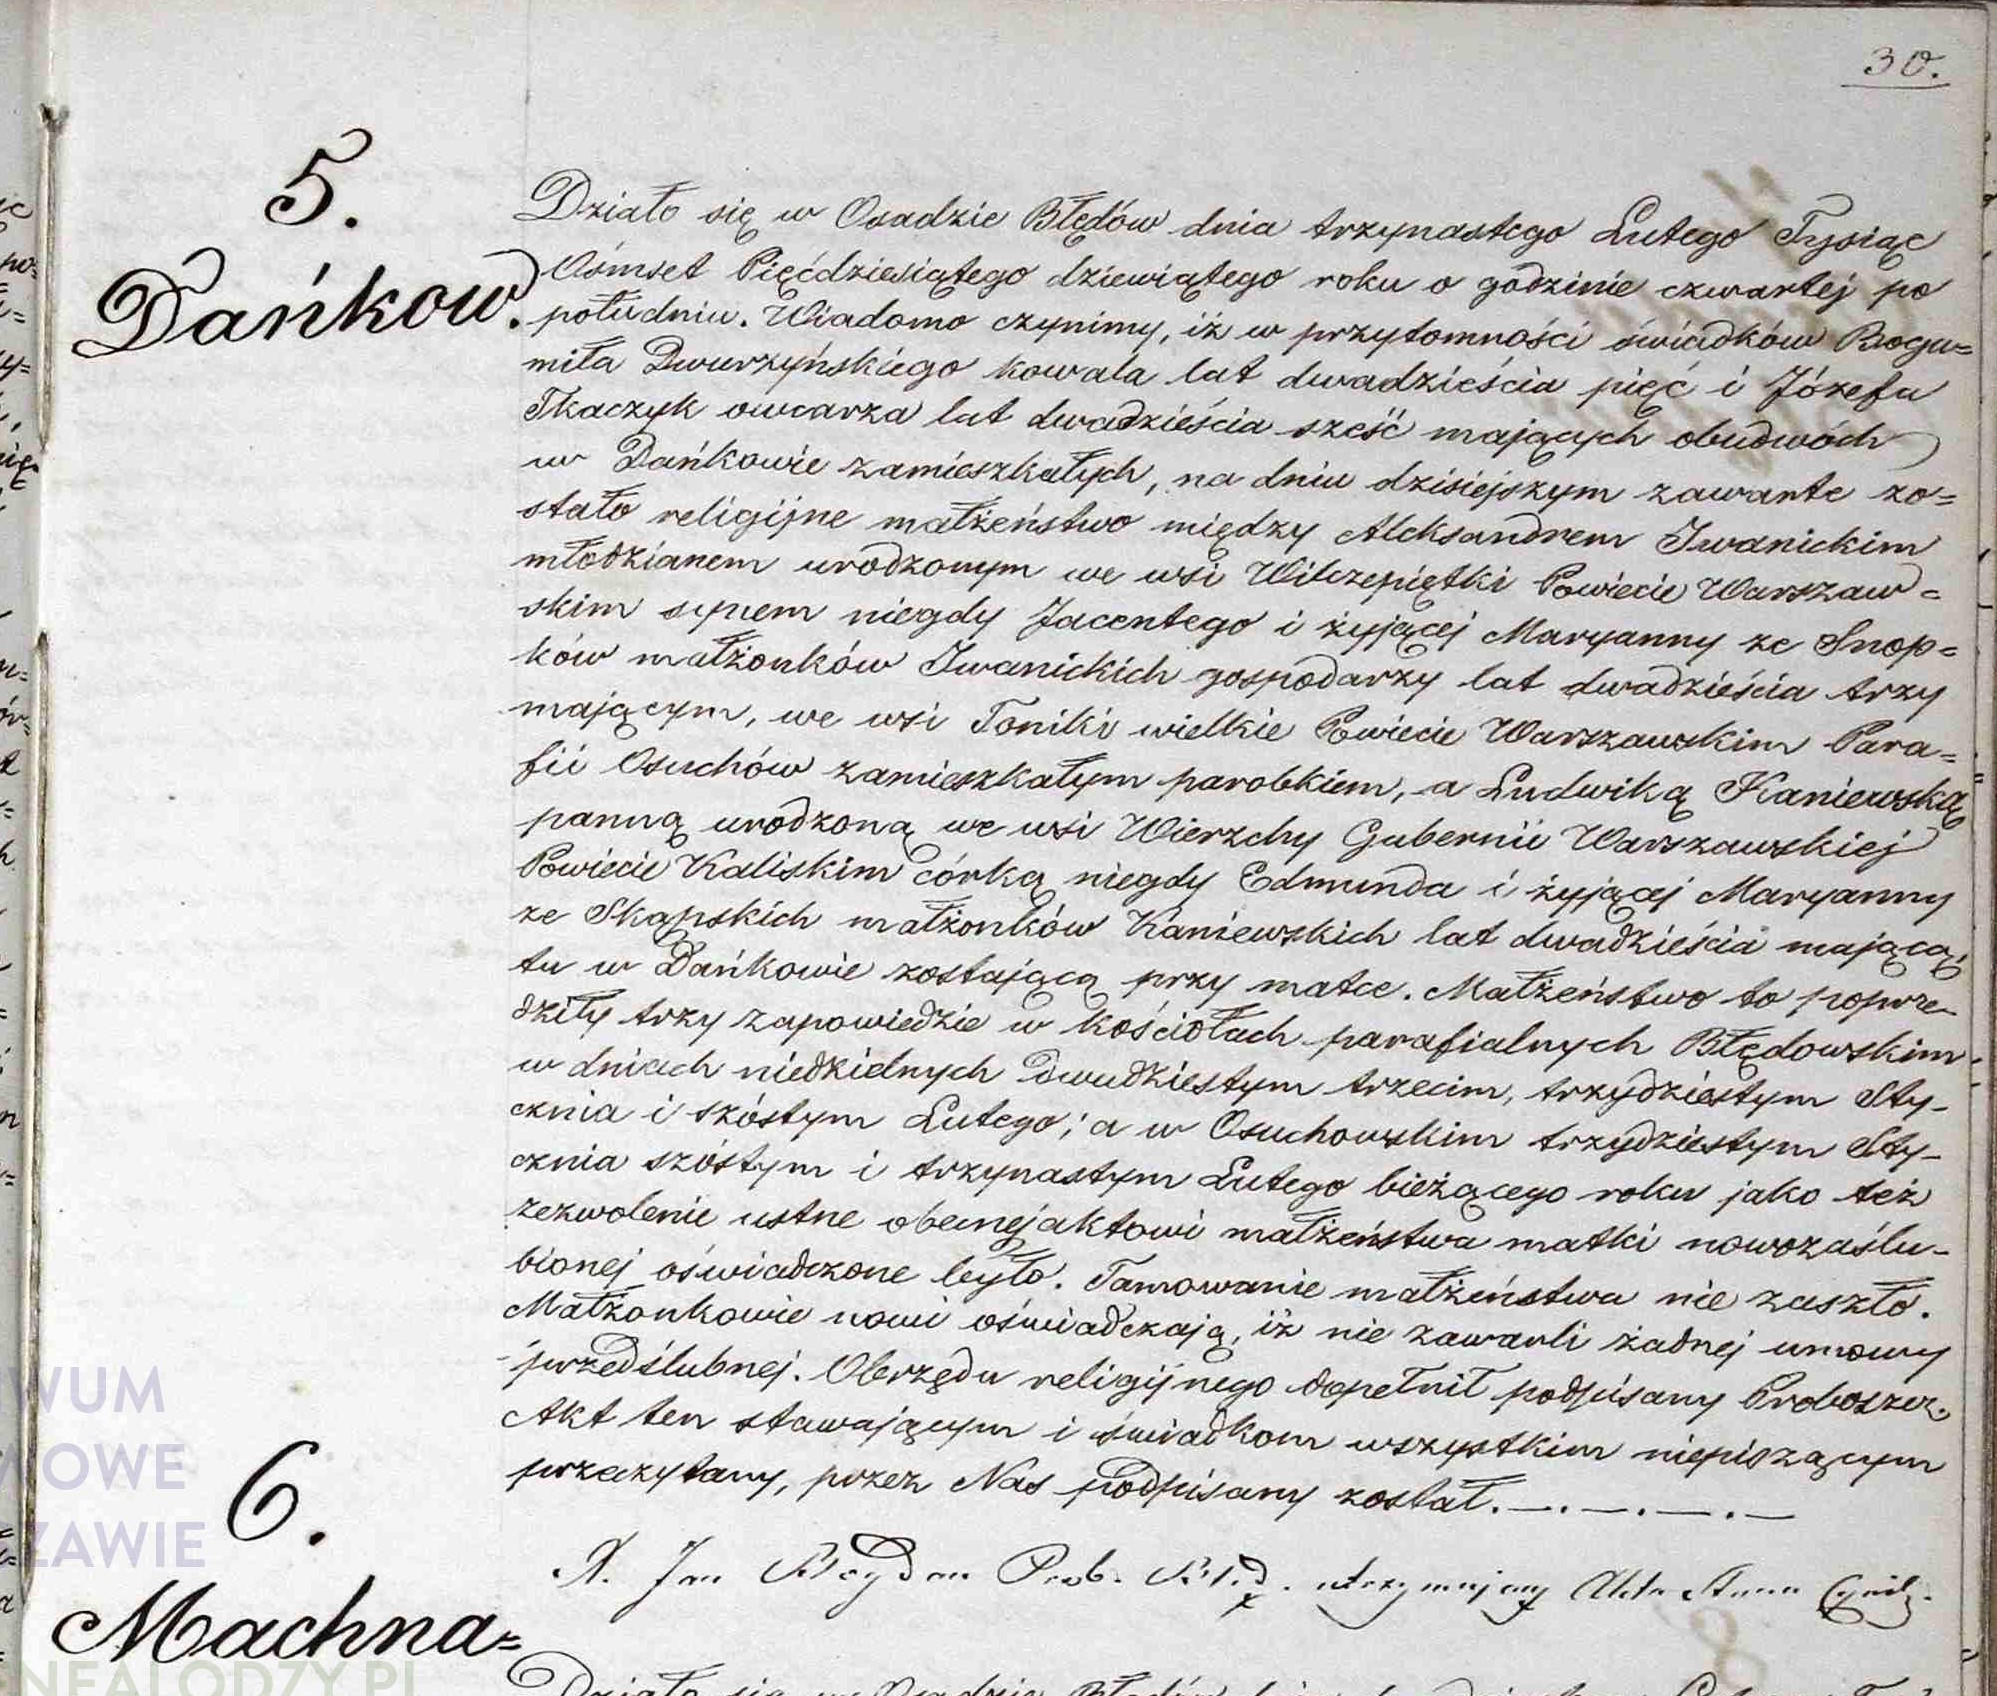 30.
5.
Dańkow.
Działo się w Osadzie Błędów dnia trzynastego Lutego Tysiąc
Ośmset Pięćdziesiątego dziewiątego roku o godzinie czwartej po
południu. Wiadomo czynimy, iż w przytomności świadków Bogu=
miła Dwurzyńskiego kowala lat dwadzieścia pięć i Józefa
Tkaczyk owczarza lat dwadzieścia sześć mających obudwóch
w Dańkowie zamieszkałych, na dniu dzisiejszym zawarte zo=
stało religijne małżeństwo między Aleksandrem Iwanickim
młodzianem urodzonym we wsi Wilczepiętki Powiecie Warszaw=
skim synem niegdy Jacentego i żyjącej Maryanny ze Snop=
ków małżonków Iwanickich gospodarzy lat dwadzieścia trzy
mającym, we wsi Toniki wielkie Powiecie Warszawskim Para=
fii Osuchów zamieszkałym parobkiem, a Ludwiką Kaniewską
panną urodzoną we wsi Wierzchy Gubernii Warszawskiej
Powiecie Kaliskim córką niegdy Edmunda i żyjącej Maryanny
ze Skąpskich małżonków Kaniewskich lat dwadzieścia mającą,
tu w Dańkowie zostającą przy matce. Małżeństwo to poprze-
dziły trzy zapowiedzie w kościołach parafialnych Błędowskim
w dniach niedzielnych dwudziestym trzecim, trzydziestym Sty-
cznia i szóstym Lutego; a w Osuchowskim trzydziestym Sty-
cznia szóstym i trzynastym Lutego bieżącego roku jako też
zezwolenie ustne obecnej aktowi małżeństwa matki nowozaślu-
bionej oświadczone było. Tamowanie małżeństwa nie zaszło.
Małżonkowie nowi oświadczają, iż nie zawarli żadnej umowy
przedślubnej. Obrzędu religijnego dopełnił podpisany Proboszcz.
Akt ten stawającym i świadkom wszystkim niepiszącym
przeczytany, przez Nas podpisany został.
X. Jan Bogdan Prob. Błęd. utrzymujący Akta Stanu Cywil.
6.
Machna=
Działo się w Osadzie Błędów
WUM
WOWE
ZAWIE
NEALODZY.PL